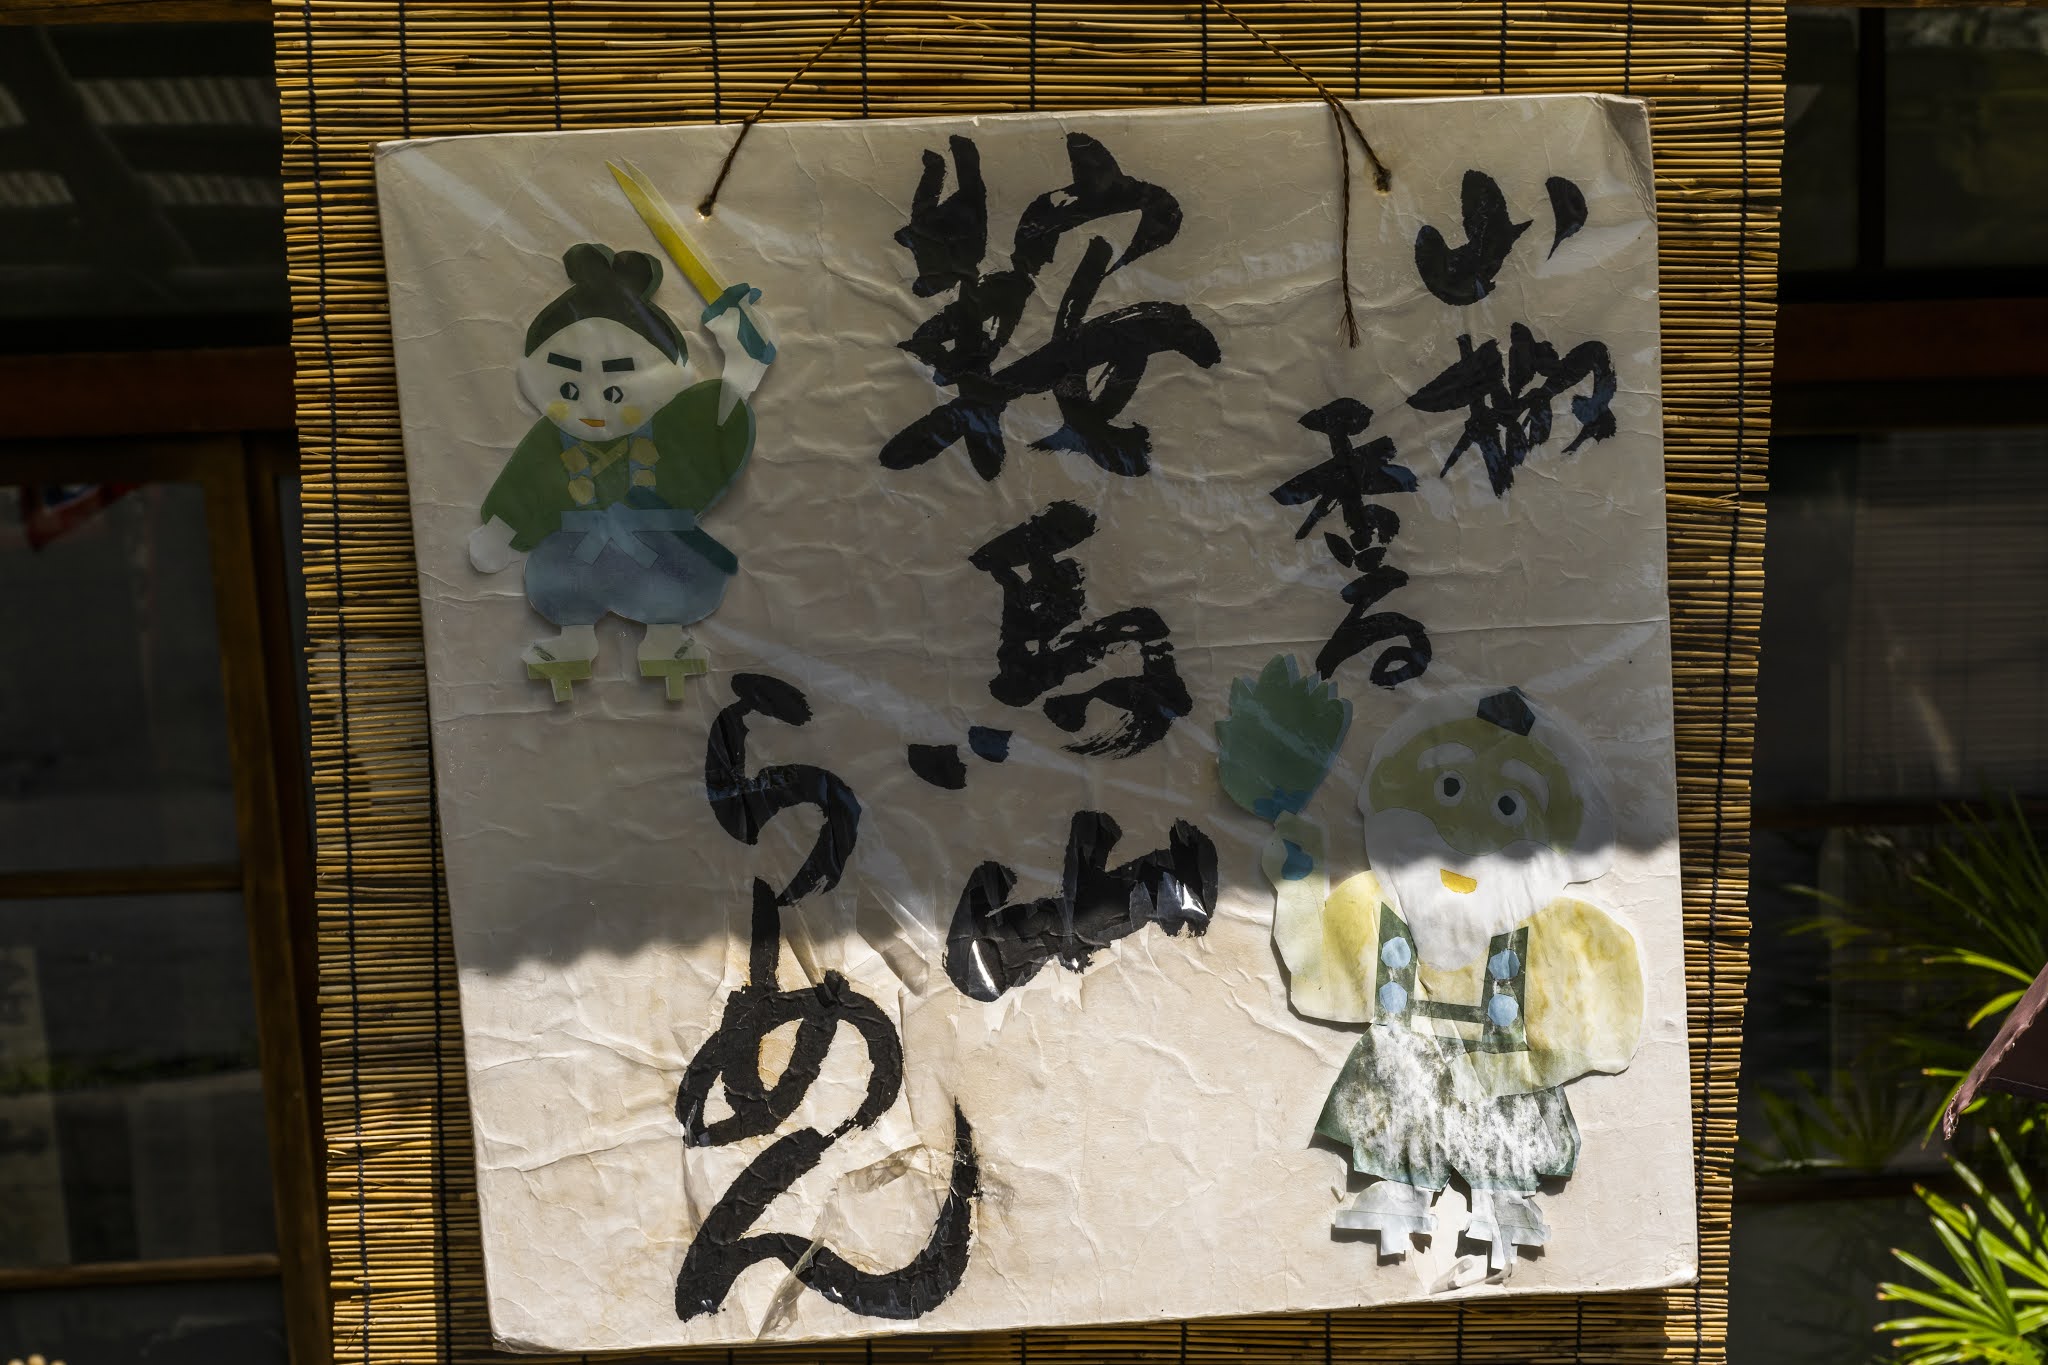 山椒
香る
鞍馬山
らーめん